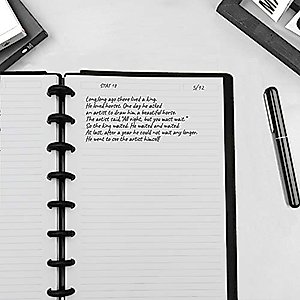 STAT 18
5/92
Long long ago there lived a king.
He loved horses. One day he asked
an artist to draw him a beautiful horse.
The artist said, "All right, but you must wait."
So the king waited. He waited and waited.
At last, after a year he could not wait any longer.
He went to see the artist himself